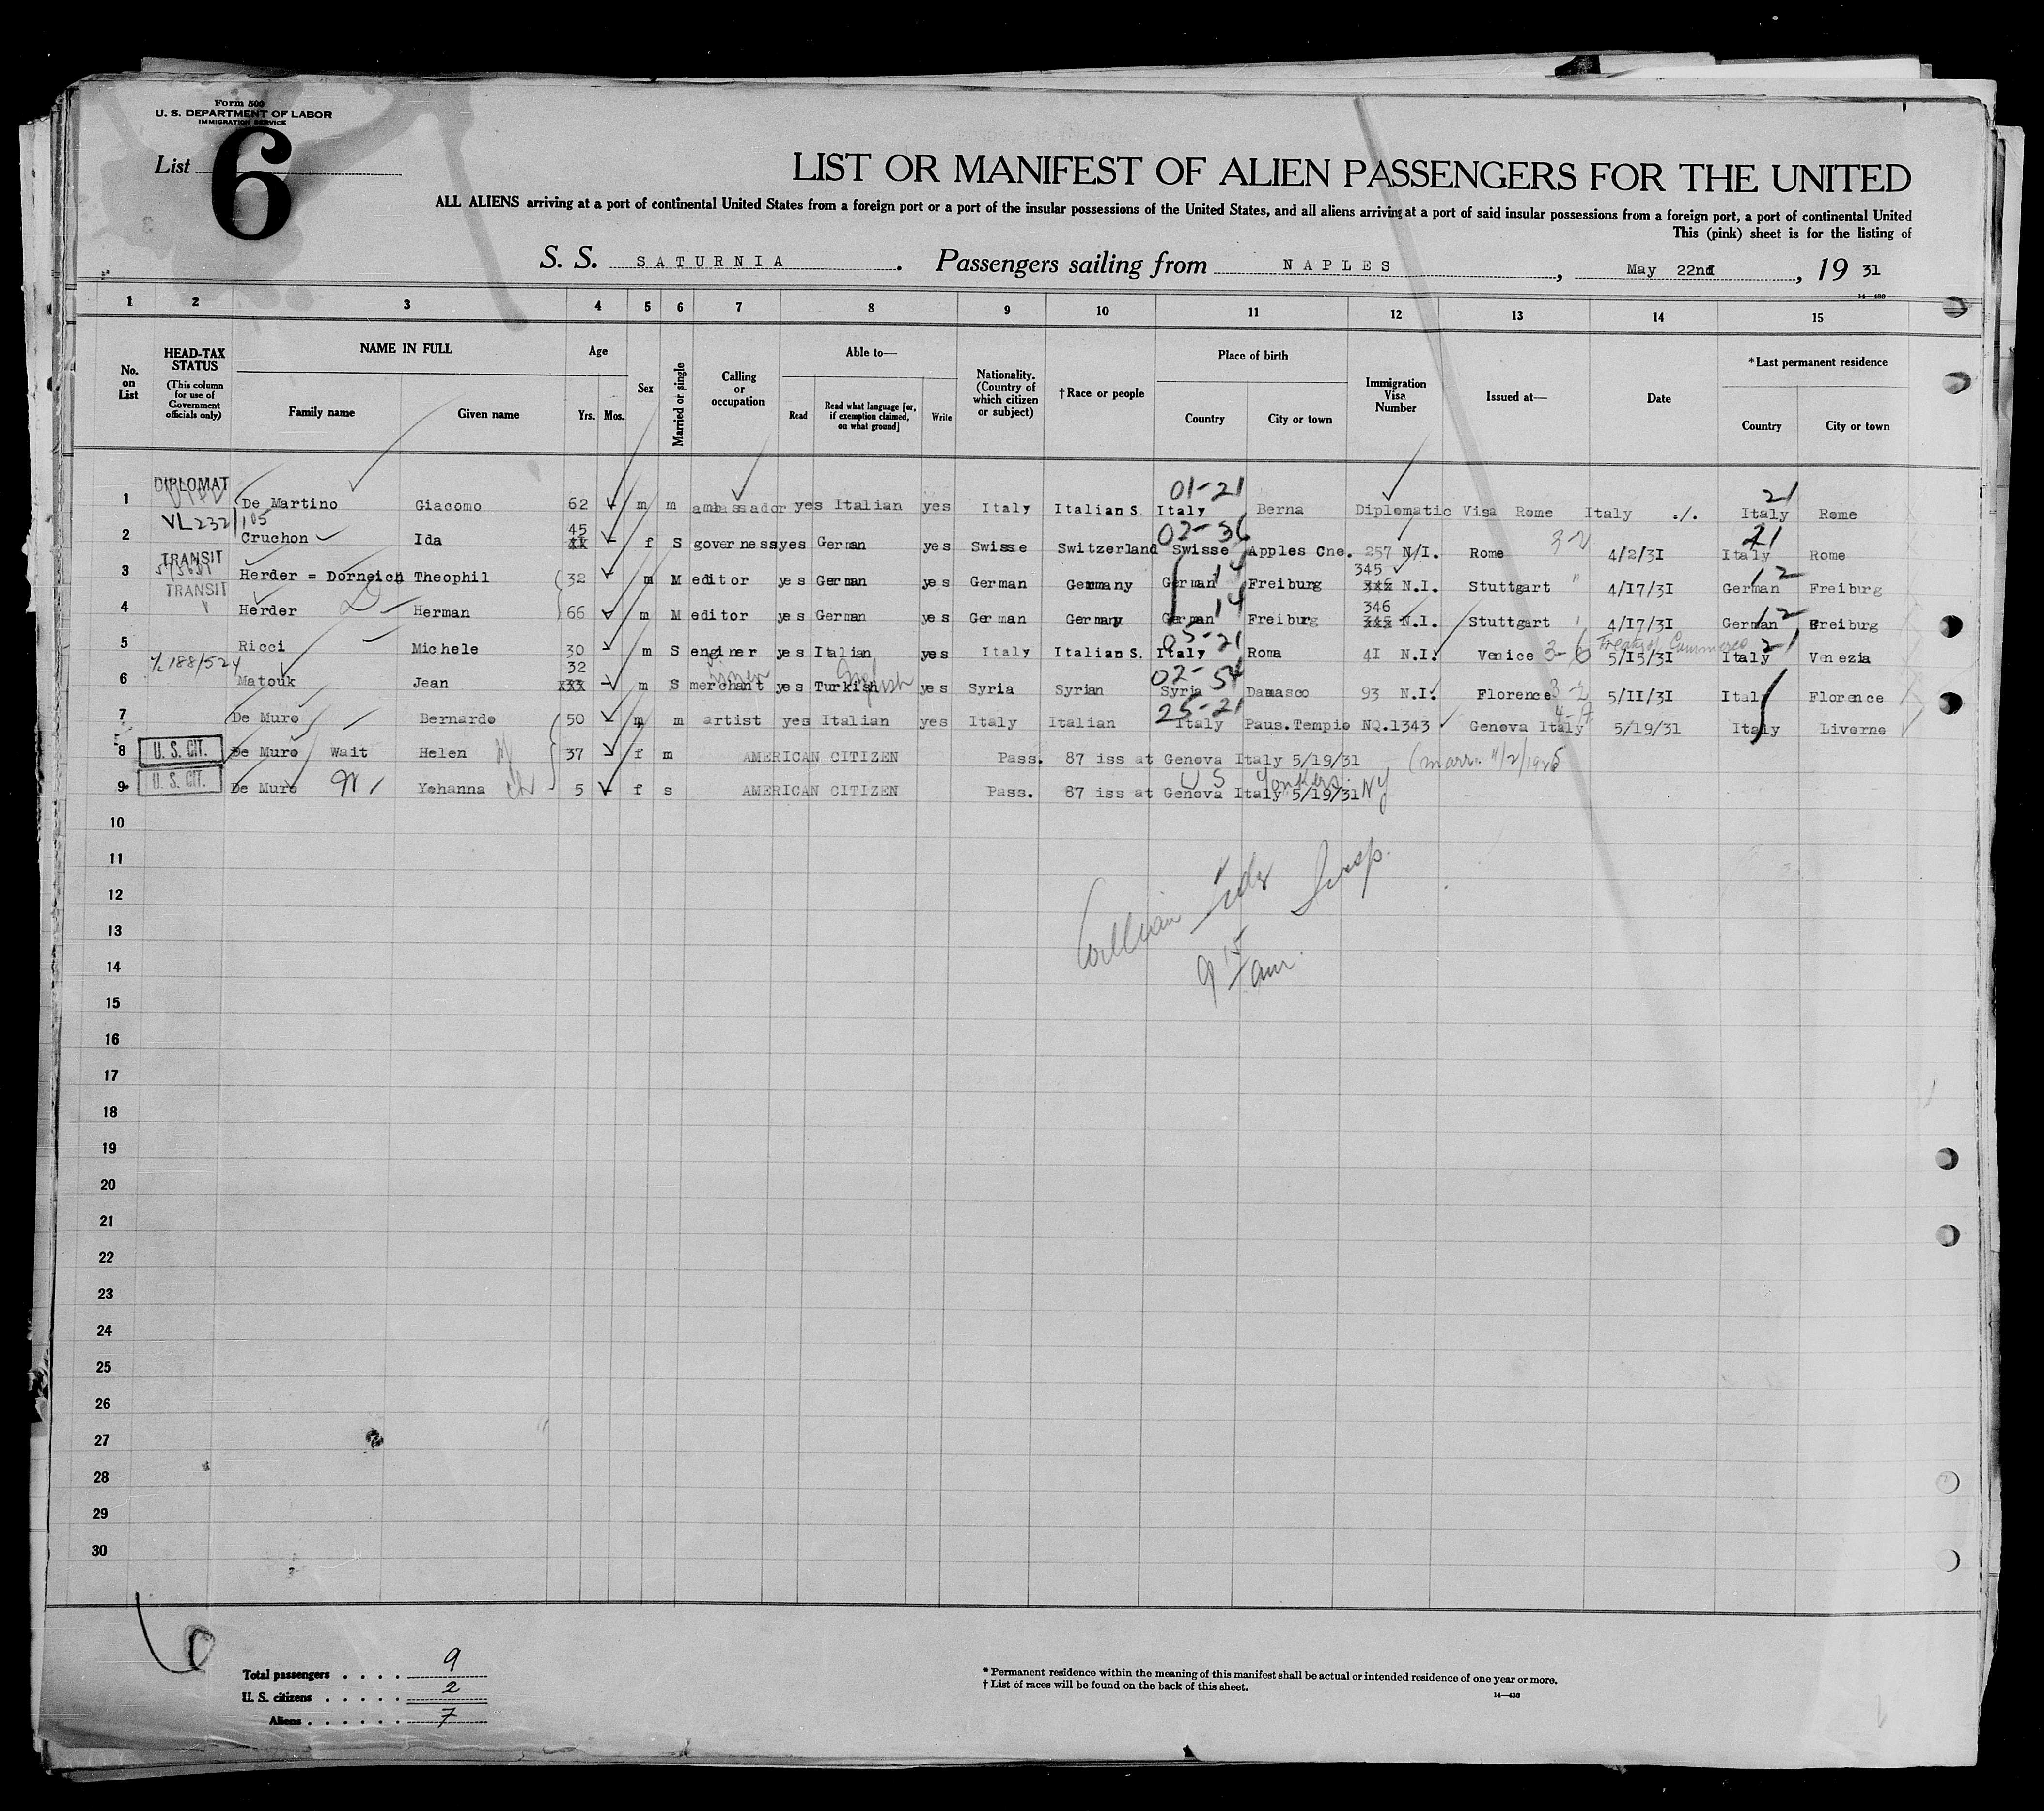 Form 500
U. S. DEPARTMENT OF LABOR
IMMIGRATION SERVICE
List 6
LIST OR MANIFEST OF ALIEN PASSENGERS FOR THE UNITED
ALL ALIENS arriving at a port of continental United States from a foreign port or a port of the insular possessions of the United States, and all aliens arriving at a port of said insular possessions from a foreign port, a port of continental United
This (pink) sheet is for the listing of
S. S. SATURNIA. Passengers sailing from NAPLES, May 22nd, 19 31
14-430
1 2 3 4 5 6 7 8 9 10 11 12 13 14 15
No. on List
HEAD-TAX STATUS
(This column for use of Government officials only)
NAME IN FULL
Family name Given name
Age
Yrs. Mos.
Sex
Married or single
Calling or occupation
Able to—
Read Read what language [or, if exemption claimed, on what ground] Write
Nationality. (Country of which citizen or subject)
†Race or people
Place of birth
Country City or town
Immigration Visa Number
Issued at—
Date
*Last permanent residence
Country City or town
1 DIPLOMAT De Martino Giacomo 62 m m ambassador yes Italian yes Italy Italian S. 01-21 Italy Berna Diplomatic Visa Rome Italy ./. 21 Italy Rome
2 VL232/105 Cruchon Ida 45 xx f S governess yes German yes Swisse Switzerland 02-36 Swisse Apples Cne. 257 N/I. Rome 3-2 4/2/31 21 Italy Rome
3 TRANSIT Herder = Dorneich Theophil 32 m M editor yes German yes German Germany German 14 Freiburg 345 xxx N.I. Stuttgart " 4/17/31 German 12 Freiburg
4 TRANSIT Herder Herman 66 m M editor yes German yes German Germany German 14 Freiburg 346 N.I. Stuttgart " 4/17/31 German 12 Freiburg
5 Ricci Michele 30 m S enginer yes Italian yes Italy Italian S. 05-21 Italy Roma 41 N.I. Venice 3-6 Treaty of Commerce 5/15/31 21 Italy Venezia
6 188/524 Matouk Jean 32 xxx m S merchant yes Turkish English yes Syria Syrian 02-54 Syria Damasco 93 N.I. Florence 3-2 5/11/31 Italy Florence
7 De Muro Bernardo 50 m m artist yes Italian yes Italy Italian 25-21 Italy Paus.Tempio NQ.1343 Genova Italy 5/19/31 Italy Liverno
8 U. S. CIT. De Muro Wait Helen 37 f m AMERICAN CITIZEN Pass. 87 iss at Genova Italy 5/19/31 (marr. 11/2/1925
9 U. S. CIT. De Muro Yohanna 5 f s AMERICAN CITIZEN Pass. 87 iss at Genova Italy 5/19/31 US Yonkers NY
10
11
12
13
14
15
16
17
18
19
20
21
22
23
24
25
26
27
28
29
30
William Insp.
9 15 am.
6
Total passengers . . . . 9
U. S. citizens . . . . . 2
Aliens . . . . . . 7
* Permanent residence within the meaning of this manifest shall be actual or intended residence of one year or more.
† List of races will be found on the back of this sheet.
14—430